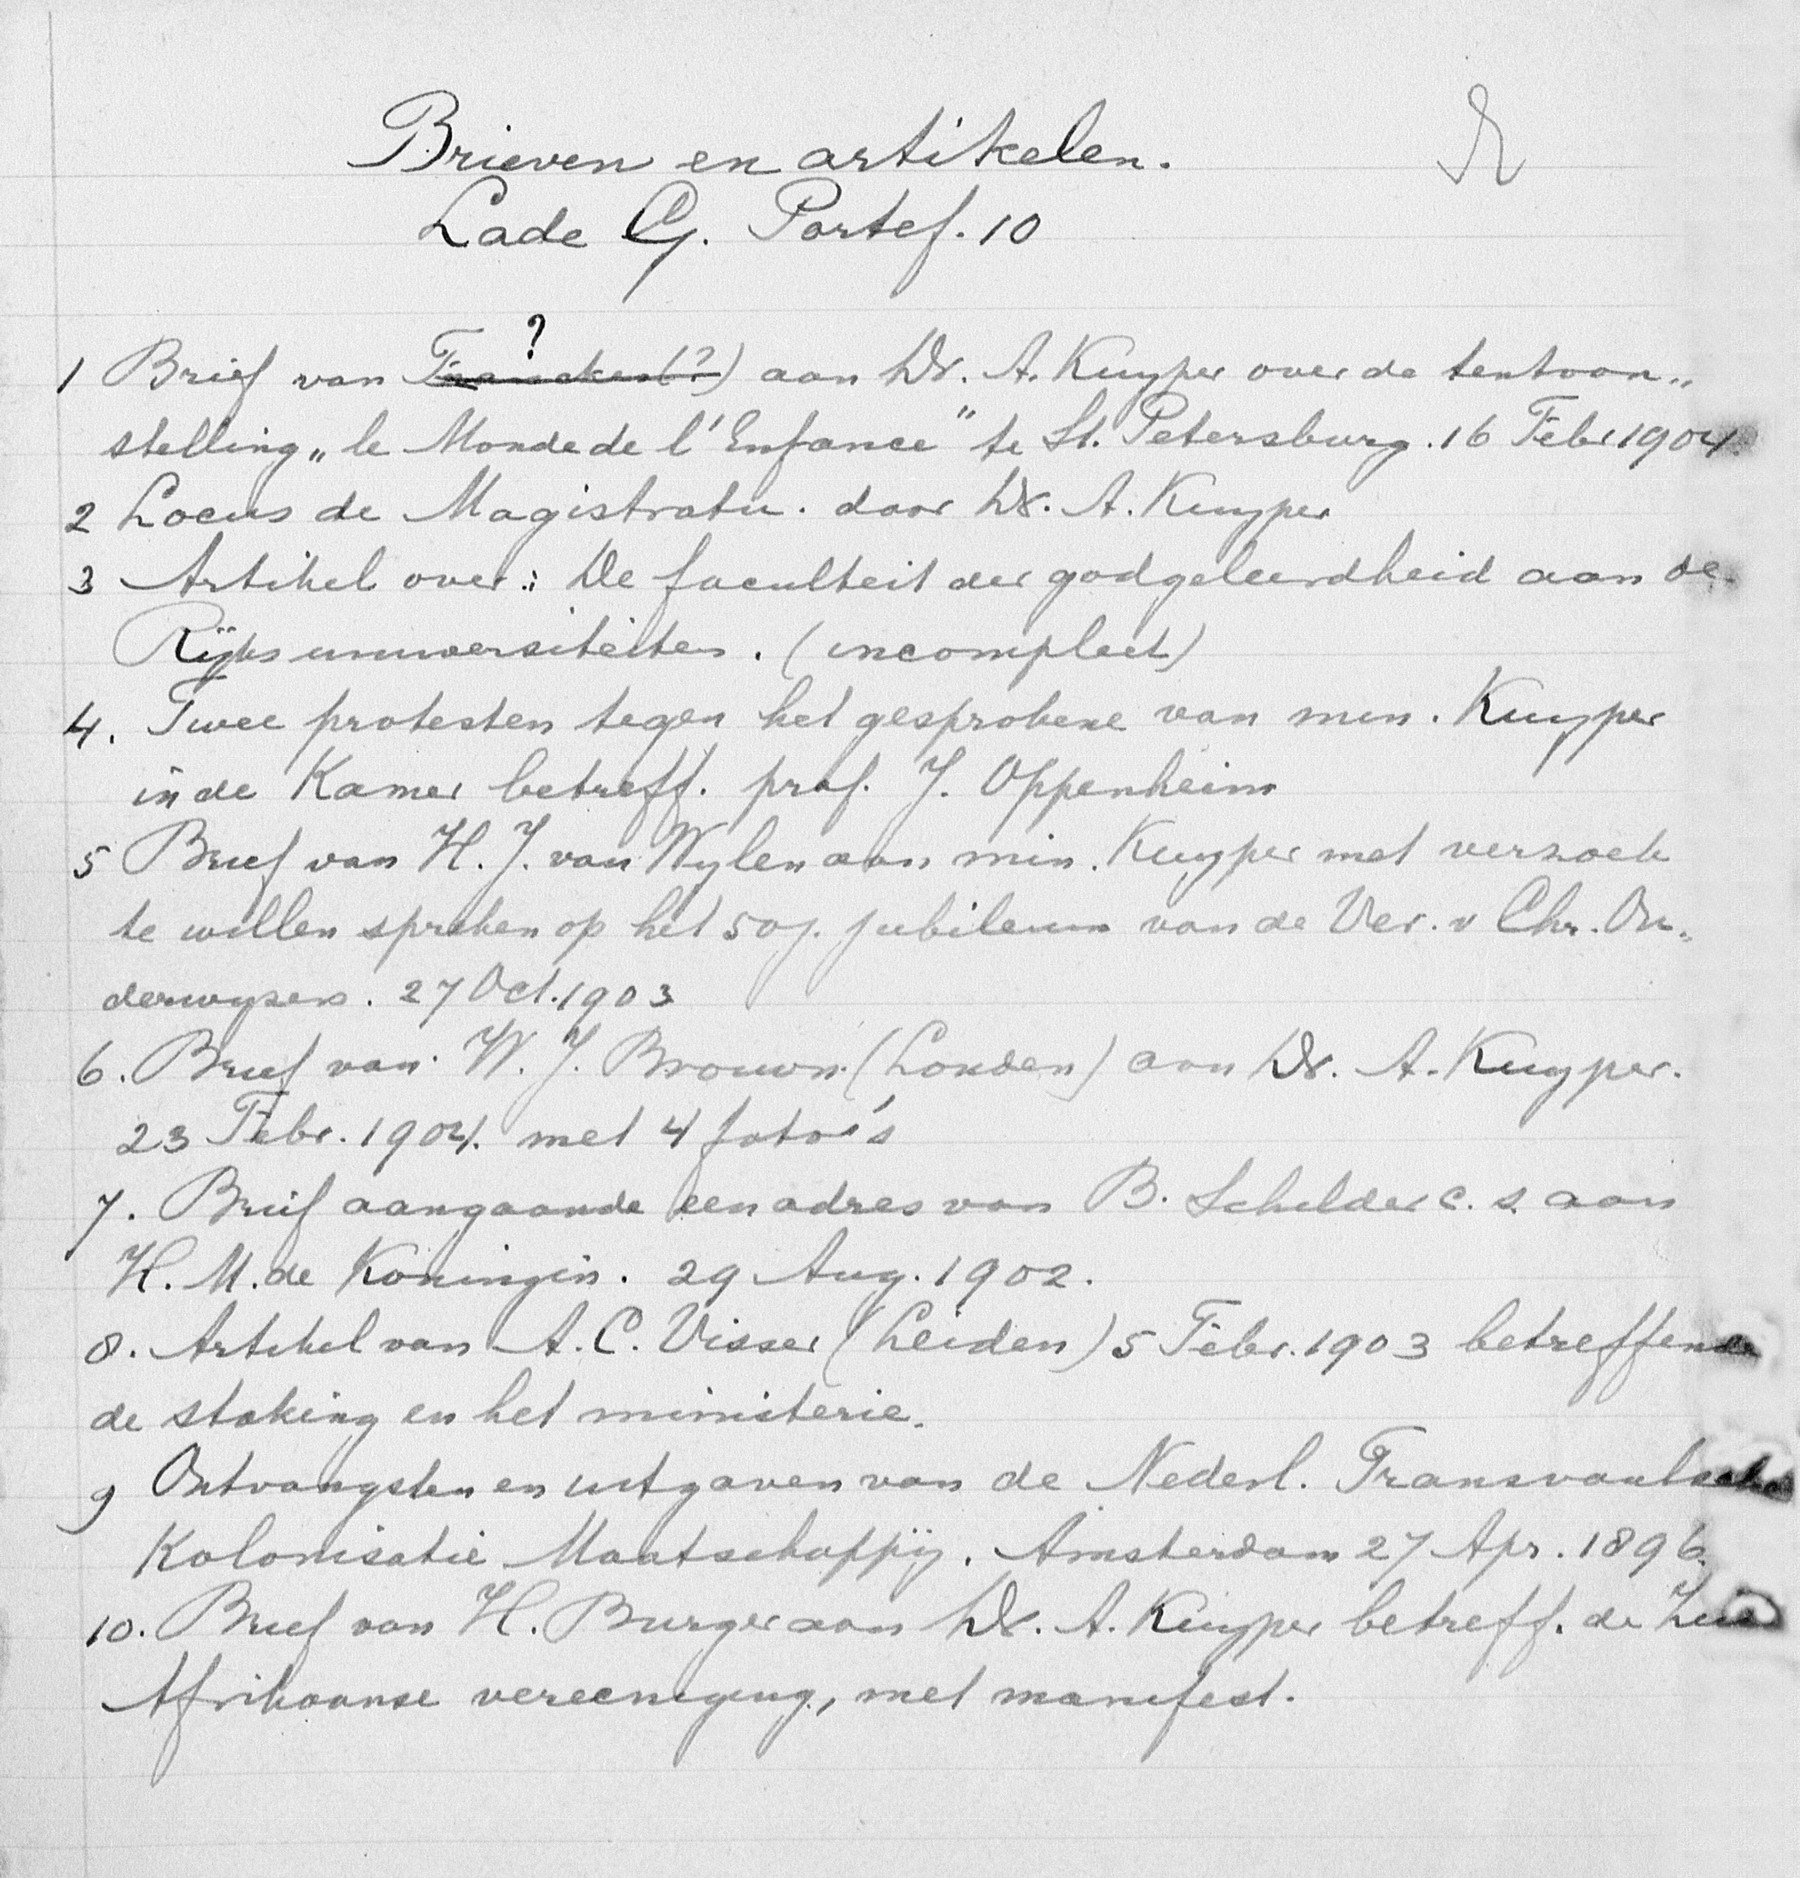 Brieven en artikelen.
Lade G. Portef. 10
?
1 Brief van Francken(?) aan Dr. A. Kuyper over de tentoon„
stelling „le Monde de l'Enfance" te St. Petersburg. 16 Febr 1904.
2 Locus de Magistratu. door Dr. A. Kuyper
3 Artikel over: De faculteit der godgeleerdheid aan de
Rijksuniversiteiten. (incompleet)
4. Twee protesten tegen het gesprokene van min. Kuyper
in de Kamer betreff. prof. J. Oppenheim
5 Brief van H. J. van Wylen aan min. Kuyper met verzoek
te willen spreken op het 50 j. jubileum van de Ver. v Chr. On„
derwyzers. 27 Oct. 1903
6. Brief van W. J. Brouwn (Londen) aan Dr. A. Kuyper.
23 Febr. 1904. met 4 foto's
7. Brief aangaande een adres van B. Schelder c. s. aan
H. M. de Koningin. 29 Aug. 1902.
8. Artikel van A. C. Visser (Leiden) 5 Febr. 1903 betreffende
de staking en het ministerie.
9 Ontvangsten en uitgaven van de Nederl. Transvaalsche
Kolonisatie Maatschappij. Amsterdam 27 Apr. 1896.
10. Brief van H. Burger aan Dr. A. Kuyper betreff. de Zuid
Afrikaanse vereeniging, met manifest.